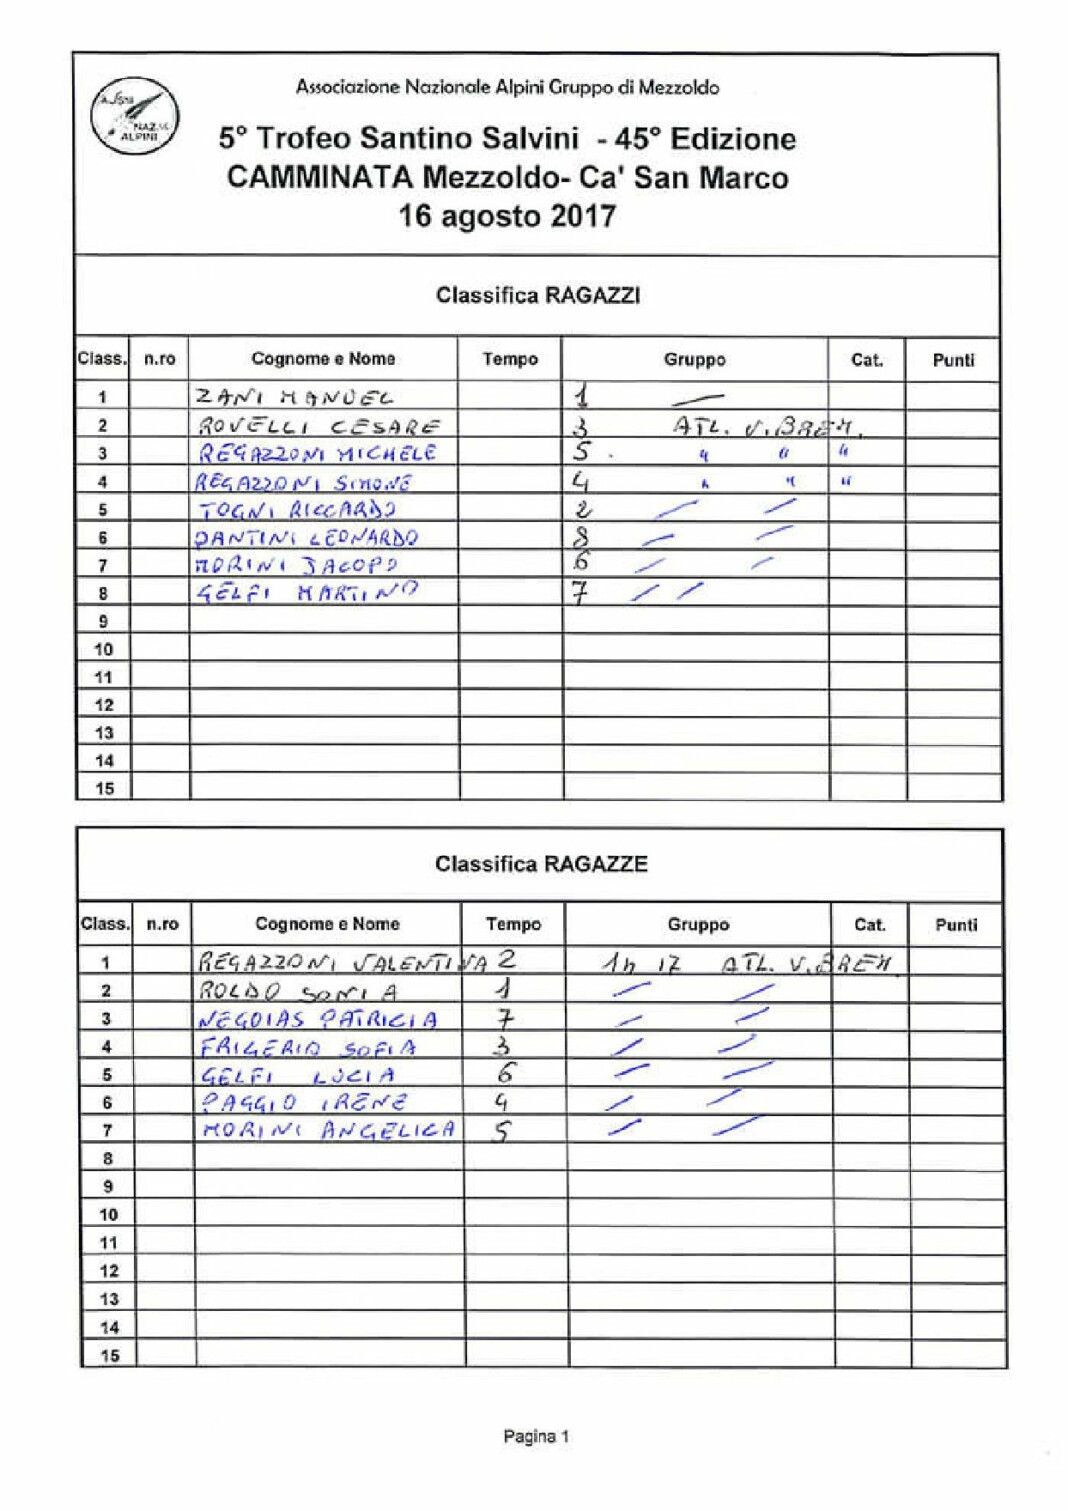 Associazione Nazionale Alpini Gruppo di Mezzoldo
NAZ.
ALPINI
5° Trofeo Santino Salvini - 45° Edizione
CAMMINATA Mezzoldo- Ca' San Marco
16 agosto 2017
Classifica RAGAZZI
Class. n.ro Cognome e Nome Tempo Gruppo Cat. Punti
1 ZANI MANUEL 1 —
2 ROVELLI CESARE 3 ATL. V.BREM.
3 REGAZZONI MICHELE 5 . " " "
4 REGAZZONI SIMONE 4 " " "
5 TOGNI RICCARDO 2 / /
6 PANTINI LEONARDO 8 / /
7 MORINI JACOPO 6 / /
8 GELFI MARTINO 7 / /
9
10
11
12
13
14
15
Classifica RAGAZZE
Class. n.ro Cognome e Nome Tempo Gruppo Cat. Punti
1 REGAZZONI VALENTINA 2 1h 17 ATL. V.BREM.
2 ROLDO SONIA 1 / /
3 NEGOIAS PATRICIA 7 / /
4 FRIGERIO SOFIA 3 / /
5 GELFI LUCIA 6 / /
6 PAGGIO IRENE 4 / /
7 MORINI ANGELICA 5 / /
8
9
10
11
12
13
14
15
Pagina 1